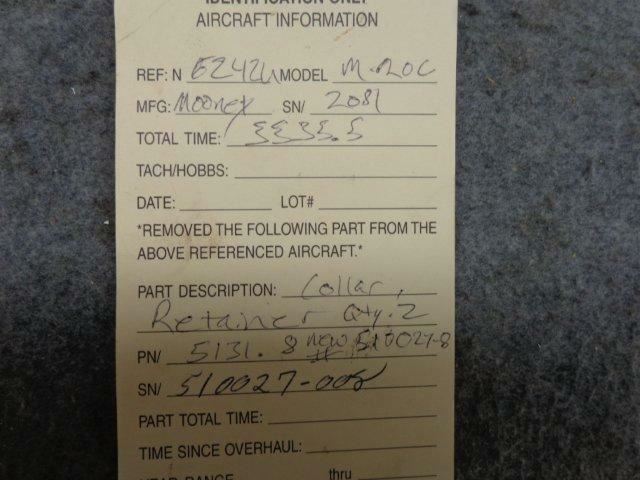 IDENTIFICATION ONLY
AIRCRAFT INFORMATION
REF: N 6242U MODEL M-20C
MFG: Mooney SN/ 2081
TOTAL TIME: 3335.5
TACH/HOBBS:
DATE: LOT#
*REMOVED THE FOLLOWING PART FROM THE
ABOVE REFERENCED AIRCRAFT.*
PART DESCRIPTION: Collar,
Retainer Qty. 2
PN/ 5131. 8 new # 510027-8
SN/ 510027-008
PART TOTAL TIME:
TIME SINCE OVERHAUL:
YEAR RANGE thru